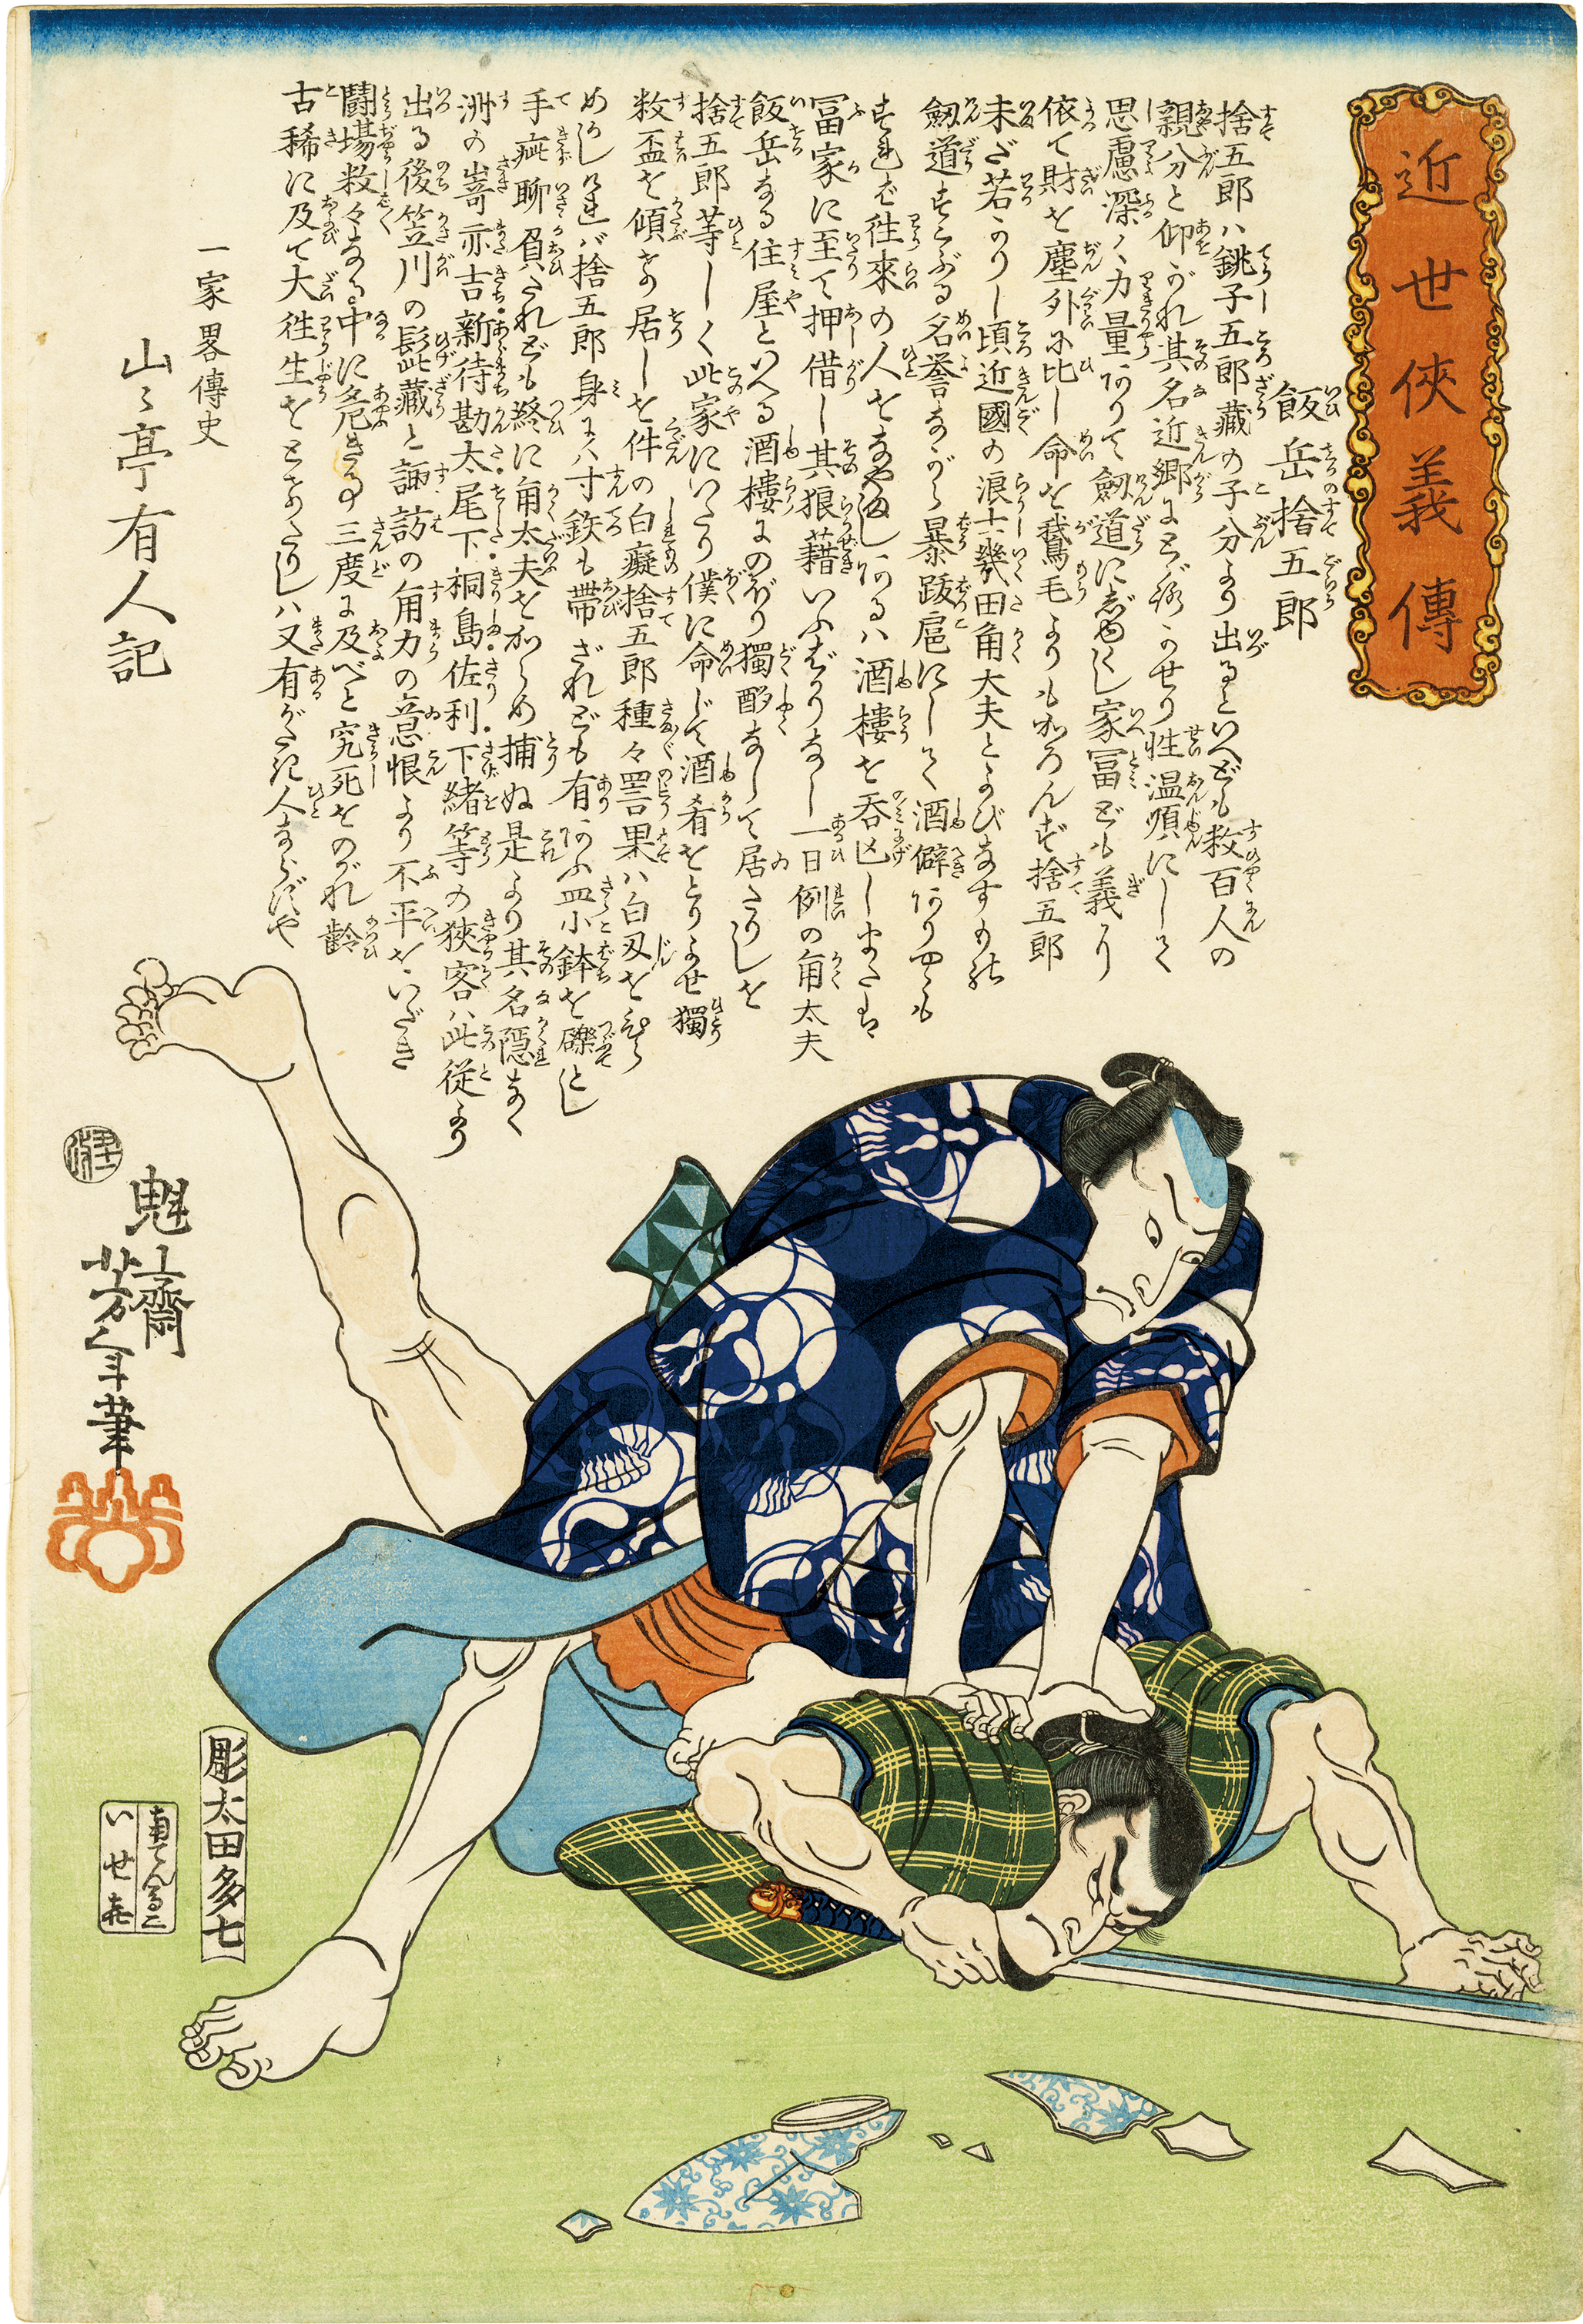 近世侠義傳
飯岳捨五郎
捨五郎ハ銚子五郎藏の子分より出るといへども数百人の
親分と仰がれ其名近郷に
性温順にして
思慮深く力量ありて劔道に
家冨ども義に
依て財を塵外に比し命を鵞毛よりもかろんず捨五郎
未だ若かりし頃近國の浪士幾田角太夫とよびなすもの
劔道すこぶる名誉ながら暴跋扈にして酒癖あり
往來の人をなやまし あるハ酒樓を呑迯し
冨家に至て押借し其狼藉いふばかりなし一日例の角太夫
飯岳なる住屋といへる酒樓にのぼり獨酌なして居たりしを
捨五郎等しく此家にいたり僕に命じて酒肴をとりよせ獨
数盃を傾け居しを件の白癡捨五郎種々詈果ハ白刄を
捨五郎身にハ寸鉄も帯ざれども有あふ皿小鉢を礫とし
手疵聊負たれども終に角太夫をからめ捕ぬ是より其名隠なく
洲の嵜亦吉新待勘太尾下桐島佐利下緒等の狹客ハ此従より
出る後笠川の髭藏と諏訪の角力の意恨より不平をいだき
闘場数々なる中に危き事三度に及べど究死をのがれ齢
古稀に及て大往生をとなたりしハ又有がたき人ならずや
一家畧傳史
山々亭有人記
魁齋
芳年筆
彫太田多七
いせ㐂